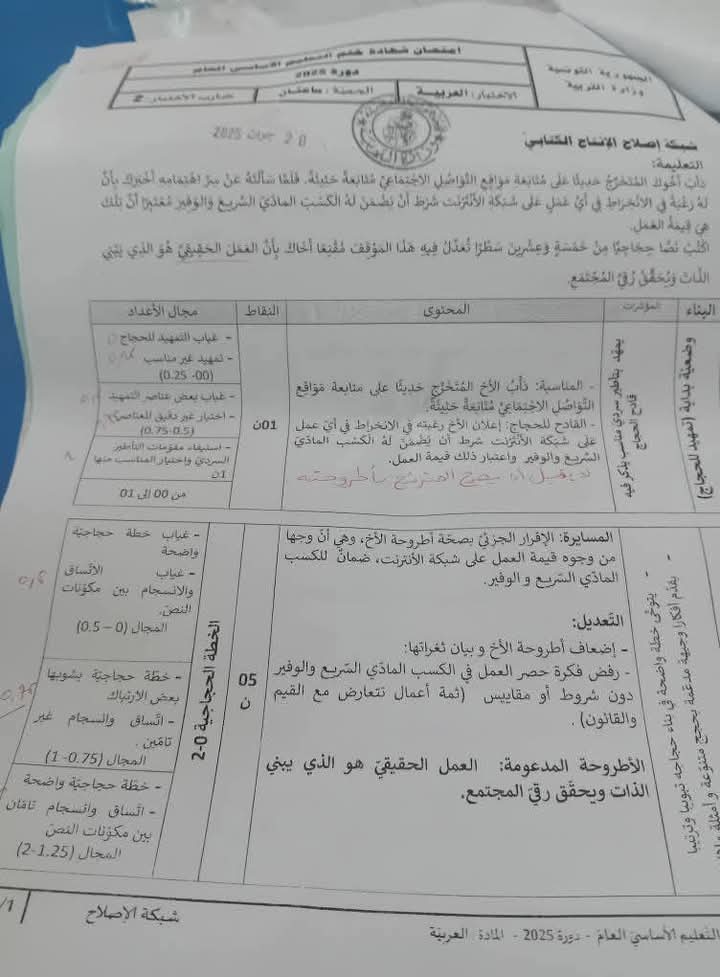 الجمهورية التونسية
وزارة التربية
امتحان شهادة ختم التعليم الأساسي العام
دورة 2025
الاختبار: العربية
الحصة: ساعتان
ضارب الاختبار: 2
20 جوان 2025
شبكة إصلاح الإنتاج الكتابي
التعليمة:
دَأَبَ أَخُوكَ المُتَخَرِّجُ حَدِيثًا عَلى مُتَابَعَةِ مَوَاقِعِ التَّوَاصُلِ الاجْتِمَاعِيِّ مُتَابَعَةً حَثِيثَةً. فَلَمَّا سَأَلْتَهُ عَنْ سِرِّ اهْتِمَامِهِ أَخْبَرَكَ بِأَنَّ
لَهُ رَغْبَةً في الانْخِرَاطِ في أَيِّ عَمَلٍ عَلى شَبَكَةِ الأَنْتَرْنَت شَرْطَ أَنْ يَضْمَنَ لَهُ الكَسْبَ المَادِّيَّ السَّرِيعَ وَالوَفِيرَ مُعْتَبِرًا أَنَّ تِلْكَ
هِيَ قِيمَةُ العَمَلِ.
اكْتُبْ نَصًّا حِجَاجِيًّا مِنْ خَمْسَةٍ وَعِشْرِينَ سَطْرًا تُعَدِّلُ فِيهِ هَذَا المَوْقِفَ مُقْنِعًا أَخَاكَ بِأَنَّ العَمَلَ الحَقِيقِيَّ هُوَ الذي يَبْنِي
الذَّاتَ وَيُحَقِّقُ رُقِيَّ المُجْتَمَعِ.
البناء
المؤشرات
المحتوى
النقاط
مجال الأعداد
وضعيّة بداية (تمهيد للحجاج)
يمهّد بتأطير سردي مناسب يذكر فيه
قادح الحجاج
- المناسبة: دَأْبُ الأخ المُتَخَرِّج حَدِيثًا على متابعة مَوَاقِع
التَّوَاصُل الاجْتِمَاعِيِّ مُتَابَعَةً حَثِيثَةً.
- القادح للحجاج: إعلان الأخ رغبته في الانخراط في أيّ عمل
على شبكة الأنْتَرْنَت شرط أن يَضْمَنَ لهُ الكسب المادّيّ
السّريع والوفير واعتبار ذلك قيمة العمل.
01ن
- غياب التمهيد للحجاج
- تمهيد غير مناسب
(00- 0.25)
- غياب بعض عناصر التمهيد
- اختيار غير دقيق للعناصر
(0.5-0.75)
- استيفاء مقوّمات التأطير
السرديّ واختيار المناسب منها
1ن
من 00 إلى 01
- يتوخّى خطة واضحة في بناء حجاجه تبويبا وترتيبا
- يقدّم أفكارا وجيهة مدعّمة بحجج متنوّعة وأمثلة
المسايرة: الإقرار الجزئيّ بصحّة أطروحة الأخ، وهي أنّ وجها
من وجوه قيمة العمل على شبكة الأنترنت، ضمانٌ للكسب
المادّيّ السّريع و الوفير.
التّعديل:
- إضعاف أطروحة الأخ و بيان ثغراتها:
- رفض فكرة حصر العمل في الكسب المادّيّ السّريع والوفير
دون شروط أو مقاييس (ثمة أعمال تتعارض مع القيم
والقانون) .
الأطروحة المدعومة: العمل الحقيقيّ هو الذي يبني
الذات ويحقّق رقيّ المجتمع.
05
ن
الخطة الحجاجية 0-2
- غياب خطة حجاجيّة
واضحة
- غياب الاتّساق
والانسجام بين مكوّنات
النصّ.
المجال (0 – 0.5)
0,5
- خطّة حجاجيّة يشوبها
بعض الارتباك
- اتّساق وانسجام غير
تامّين .
المجال (0.75-1)
0,75
- خطّة حجاجيّة واضحة
- اتّساق وانسجام تامّان
بين مكوّنات النصّ
المجال (1.25-2)
التعليم الأساسيّ العامّ - دورة 2025 - المادة : العربيّة
شبكة الإصلاح
1/